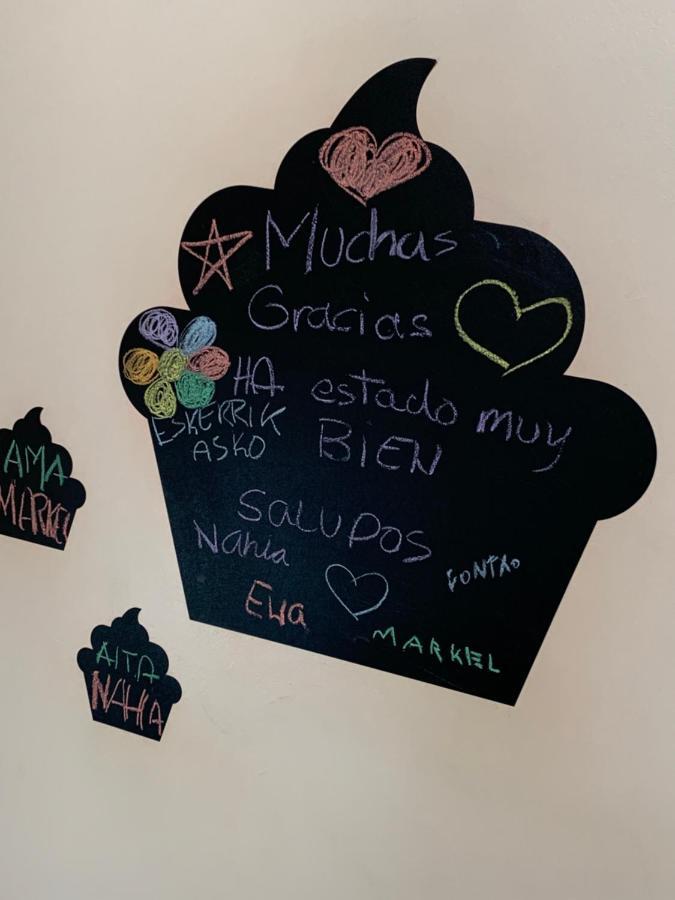 Muchas
Gracias
HA estado muy
BIEN
ESKERRIK
ASKO
SALUDOS
Nahia
Ewa
MARKEL
AMA
MARKEL
AITA
NAHIA